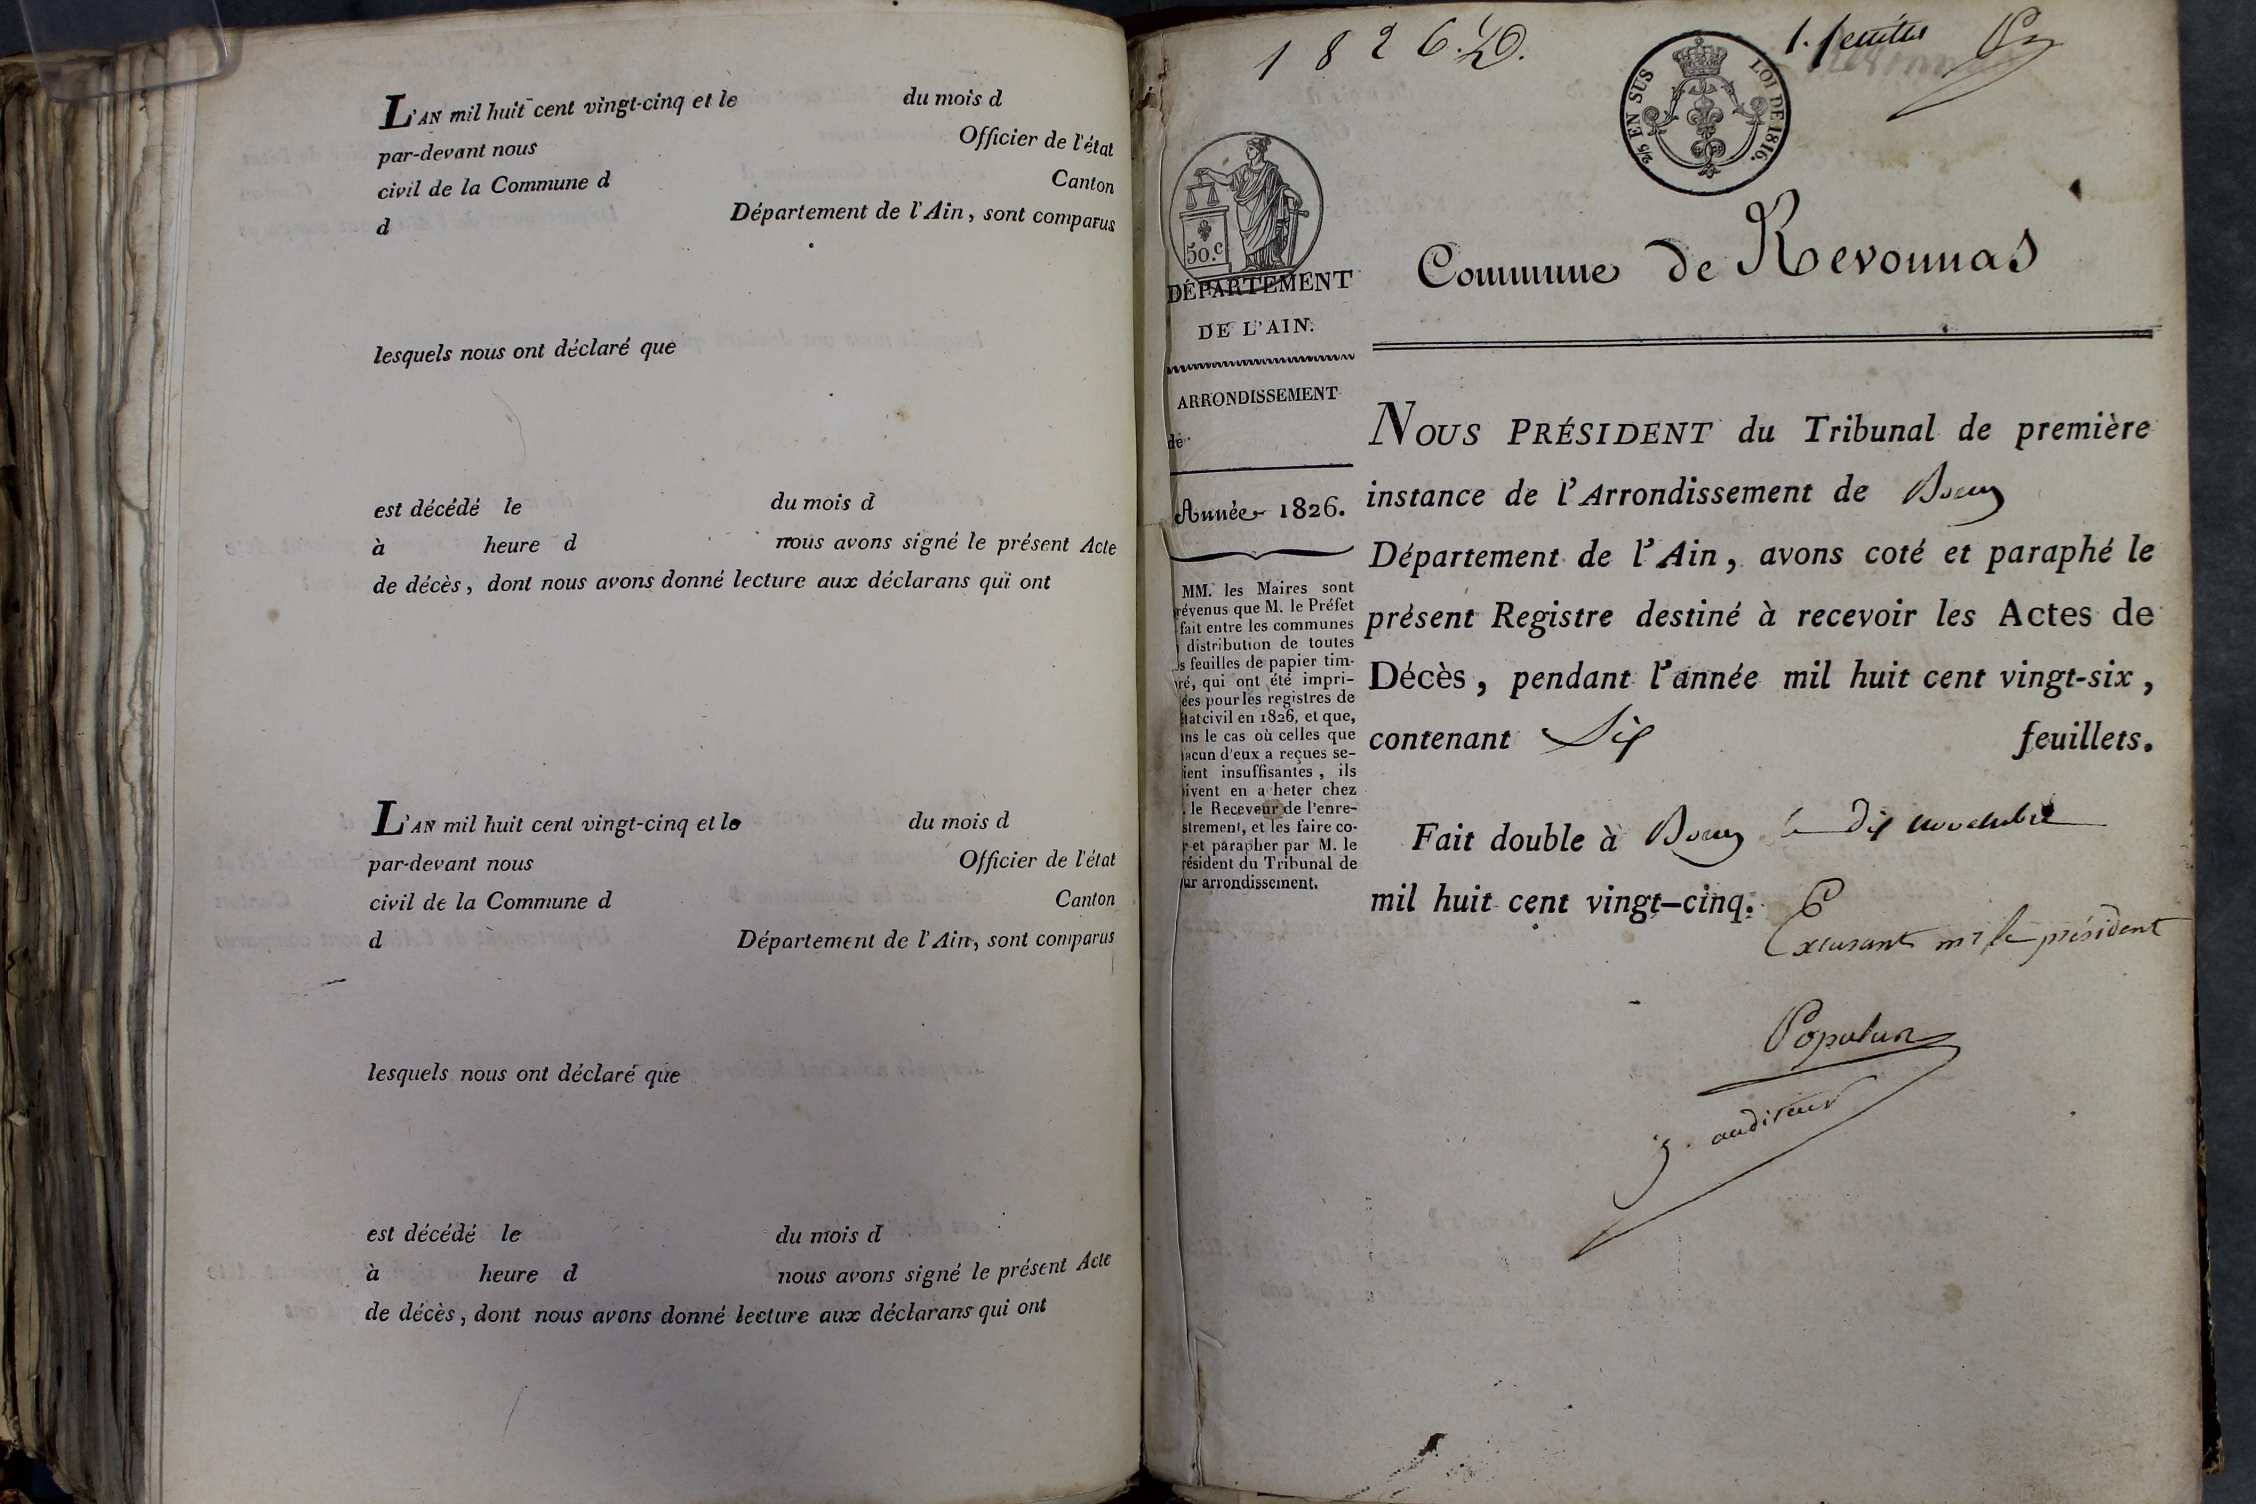 L'AN mil huit cent vingt-cinq et le du mois d
par-devant nous Officier de l'état
civil de la Commune d Canton
d Département de l'Ain, sont comparus
lesquels nous ont déclaré que
est décédé le du mois d
à heure d nous avons signé le présent Acte
de décès, dont nous avons donné lecture aux déclarans qui ont
L'AN mil huit cent vingt-cinq et le du mois d
par-devant nous Officier de l'état
civil de la Commune d Canton
d Département de l'Ain, sont comparus
lesquels nous ont déclaré que
est décédé le du mois d
à heure d nous avons signé le présent Acte
de décès, dont nous avons donné lecture aux déclarans qui ont
1826. D.
1.
2/5 EN SUS LOI DE 1816.
50.c
DÉPARTEMENT
DE L'AIN.
ARRONDISSEMENT
de
Année 1826.
MM. les Maires sont
révenus que M. le Préfet
fait entre les communes
distribution de toutes
s feuilles de papier tim-
ré, qui ont été impri-
ées pour les registres de
tat civil en 1826, et que,
ns le cas où celles que
acun d'eux a reçues se-
ient insuffisantes, ils
ivent en a heter chez
. le Receveur de l'enre-
strement, et les faire co-
r et parapher par M. le
résident du Tribunal de
ur arrondissement.
Commune de Revonnas
NOUS PRÉSIDENT du Tribunal de première
instance de l'Arrondissement de Bourg
Département de l'Ain, avons coté et paraphé le
présent Registre destiné à recevoir les Actes de
Décès, pendant l'année mil huit cent vingt-six,
contenant Six feuillets.
Fait double à Bourg le dix novembre
mil huit cent vingt-cinq.
Excusant mr le président
Populus
j. auditeur